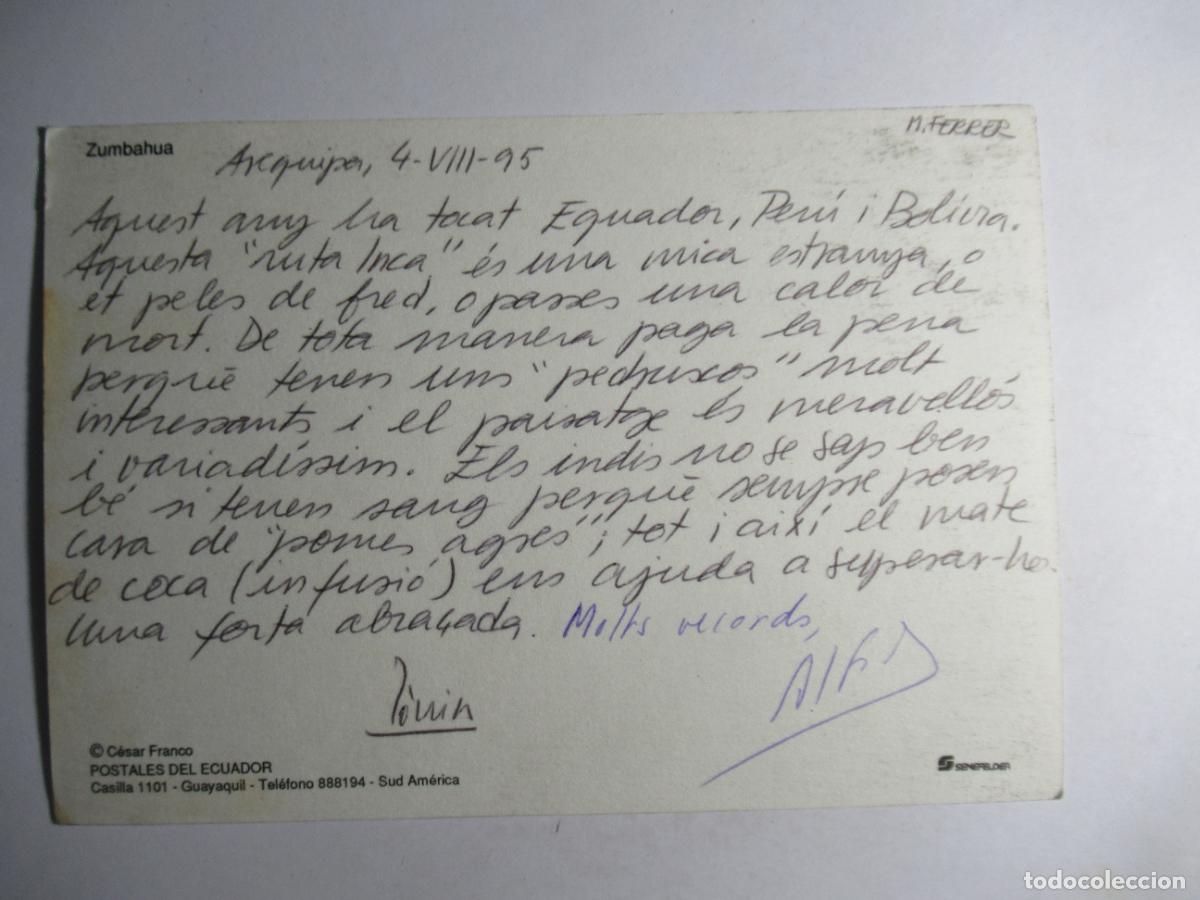 M. FERRER
Zumbahua
Arequipa, 4-VIII-95
Aquest any ha tocat Equador, Perú i Bolívia.
Aquesta "ruta Inca" és una mica estranya, o
et peles de fred, o passes una calor de
mort. De tota manera paga la pena
perquè tenen uns "pedruscos" molt
interessants i el paisatge és meravellós
i variadíssim. Els indis no se sap ben
bé si tenen sang perquè sempre posen
cara de "pomes agres"; tot i així el mate
de coca (infusió) ens ajuda a superar-ho.
Una forta abraçada. Molts records,
© César Franco
POSTALES DEL ECUADOR
Casilla 1101 - Guayaquil - Teléfono 888194 - Sud América
SENEFELDER
todocoleccion